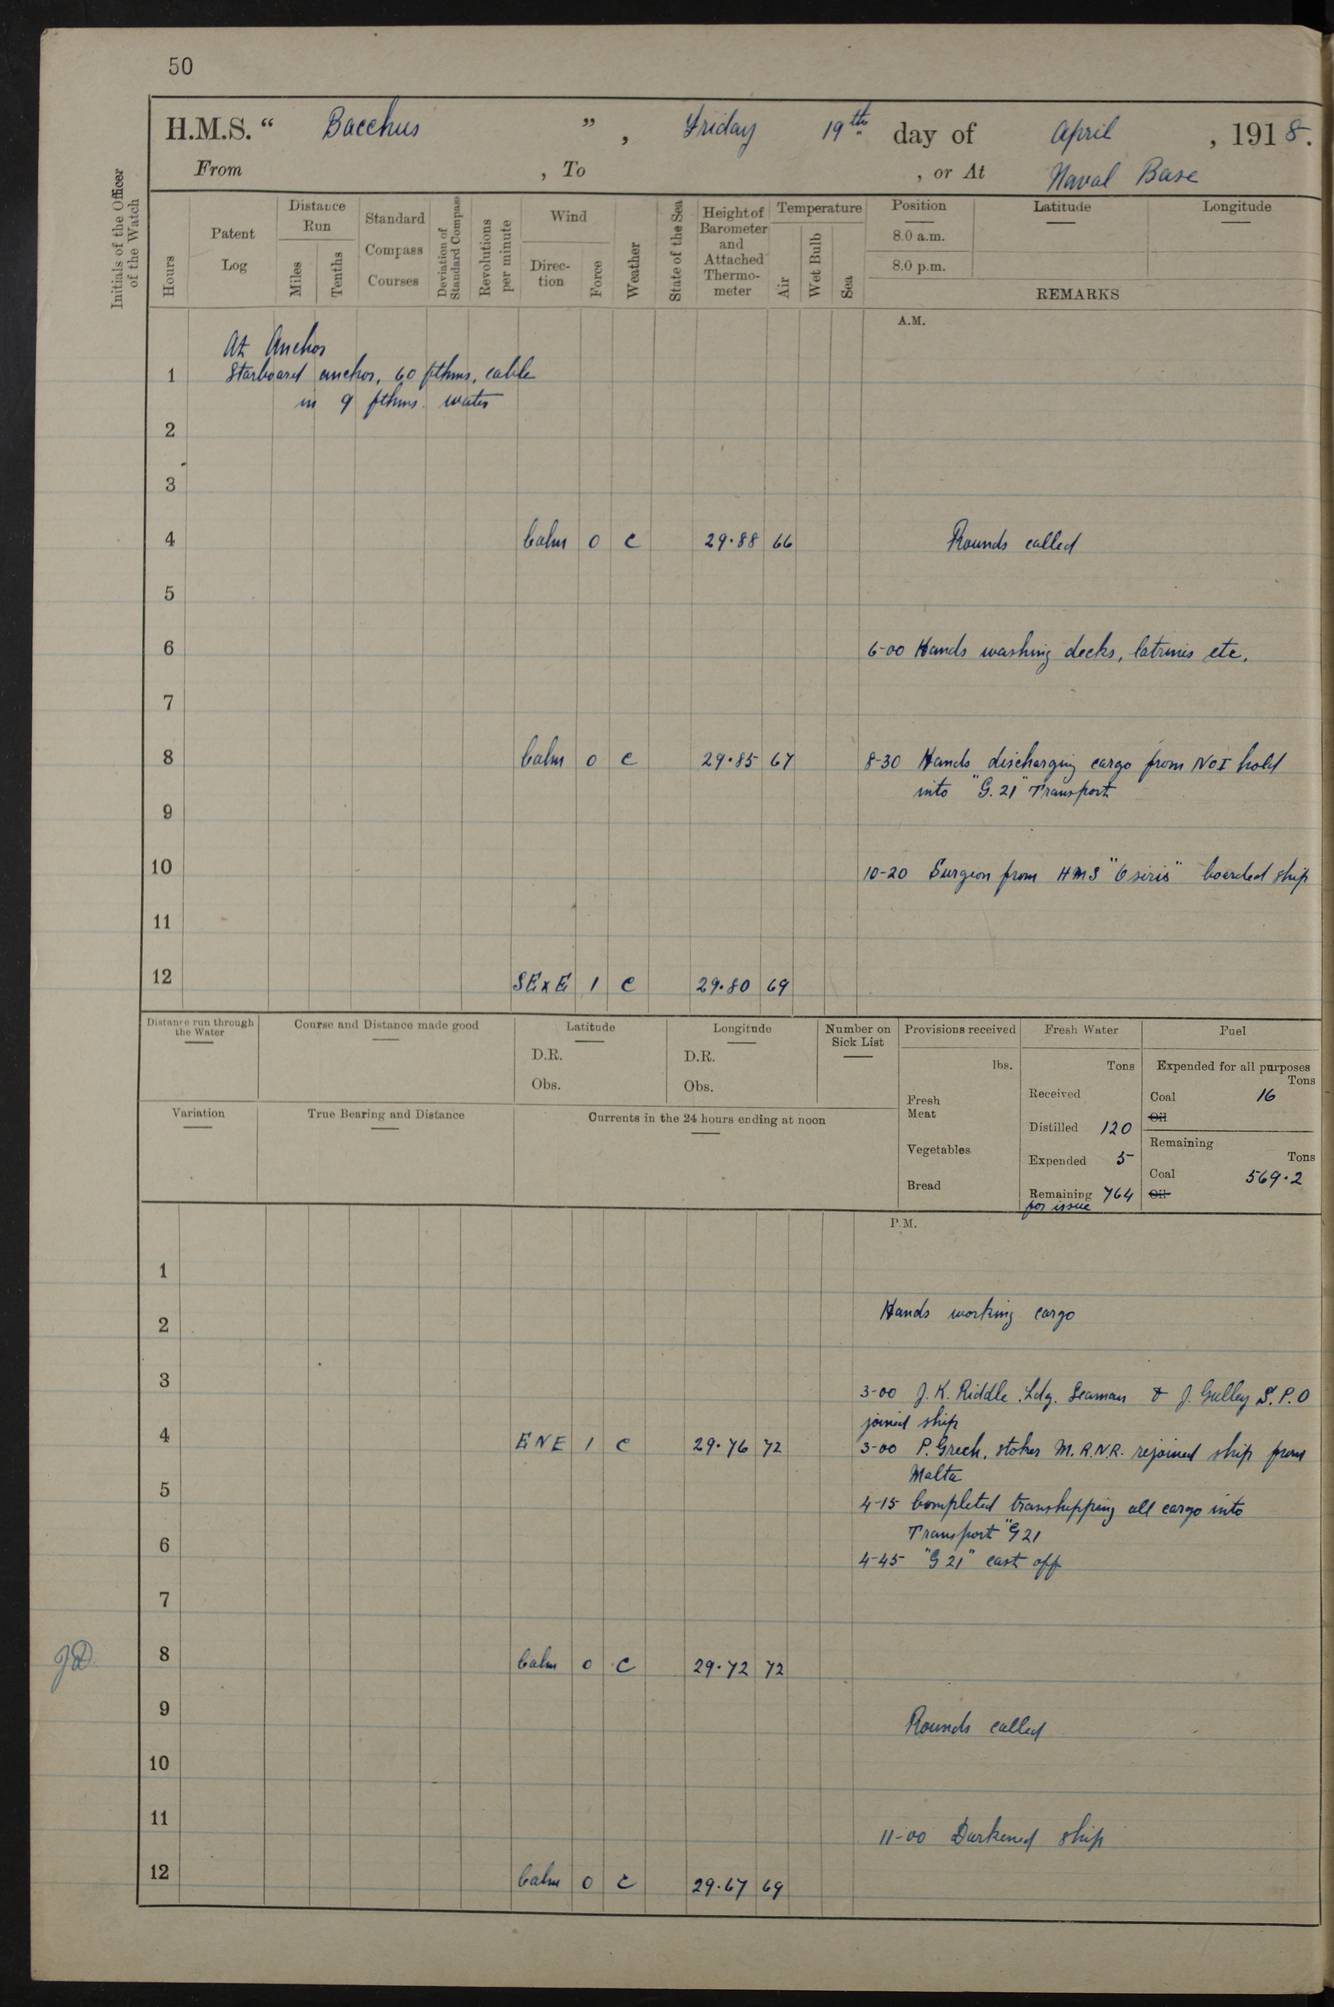 50
H.M.S. “ Bacchus ” , Friday 19th day of April , 1918.
From , To , or At Naval Base
Initials of the Officer of the Watch
Hours
Patent Log
Distance Run
Miles
Tenths
Standard Compass Courses
Deviation of Standard Compass
Revolutions per minute
Wind
Direc- tion
Force
Weather
State of the Sea
Height of Barometer and Attached Thermo- meter
Temperature
Air
Wet Bulb
Sea
Position
8.0 a.m.
8.0 p.m.
Latitude
Longitude
REMARKS
A.M.
At Anchor
1 Starboard anchor, 60 fthms, cable
in 9 fthms. water
2
3
4 Calm 0 c 29.88 66 Rounds called
5
6 6-00 Hands washing decks, latrines etc.
7
8 Calm 0 c 29.85 67 8-30 Hands discharging cargo from No I hold
into "G.21" Transport
9
10 10-20 Surgeon from HMS "Osiris" boarded ship
11
12 SExE 1 c 29.80 69
Distance run through the Water
Course and Distance made good
Latitude
D.R.
Obs.
Longitude
D.R.
Obs.
Number on Sick List
Provisions received
lbs.
Fresh Meat
Vegetables
Bread
Fresh Water
Tons
Received
Distilled 120
Expended 5
Remaining 764
for issue
Fuel
Expended for all purposes
Tons
Coal 16
Oil
Remaining
Tons
Coal 569.2
Oil
Variation
True Bearing and Distance
Currents in the 24 hours ending at noon
P.M.
1
2 Hands working cargo
3 3-00 J. K. Riddle Ldg. Seaman & J. Gulley S.P.O
joined ship
4 ENE 1 c 29.76 72 3-00 P. Grech, stoker M.R.N.R. rejoined ship from
Malta
5 4-15 Completed transhipping all cargo into
Transport "G21
6 4-45 "G 21" cast off
7
JD 8 Calm 0 c 29.72 72
9 Rounds called
10
11 11-00 Darkened ship
12 Calm 0 c 29.67 69